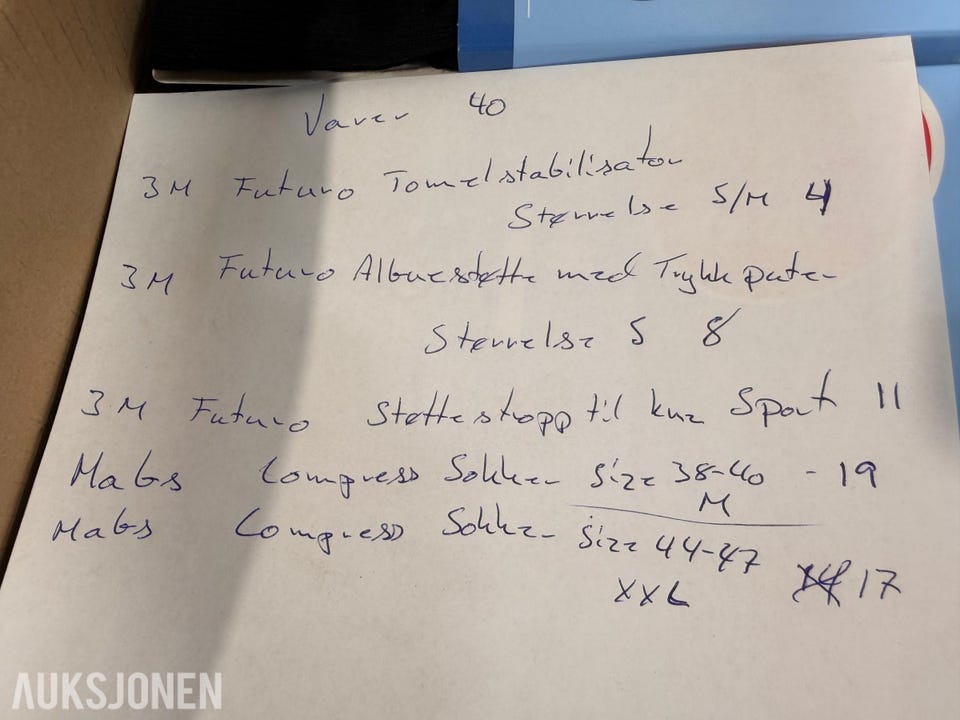 Varer 40
3M Futuro Tomelstabilisator
Størrelse S/M 4
3M Futuro Albuestøtte med Trykkpute
Størrelse S 8
3M Futuro Støttestropp til kne Sport 11
Mabs Compress Sokker Size 38-40 - 19
M
Mabs Compress Sokker Size 44-47
XXL 17
AUKSJONEN